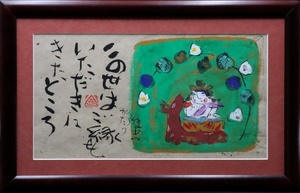 この世はご縁を
いただきに
きたところ